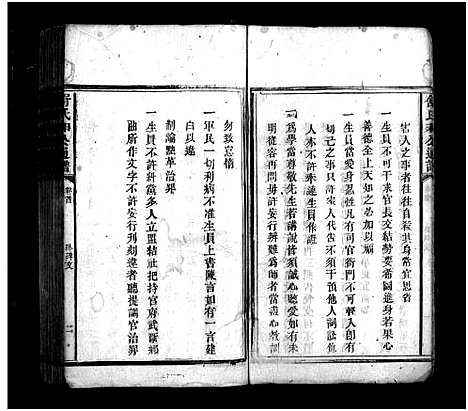 害人之事者往往自當宜思省
一生員不可干求官長交結勢要希圖進身若果心
善德全上天知之必加以福
一生員當愛身忍性凡有司官衙門不可輕入即有
切己之事止許家人代告不許干預他人詞訟他
人亦不許牽連生員作證
一爲學當尊敬先生若講說皆須誠心聽受如有未
明從容再問毋妄行辨難爲師者當盡心教訓
勿致怠惰
一軍民一切利病不准生員上書陳言如有一言建
白以違
制論黜革治罪
一生員不許糾黨多人立盟結社把持官府武斷鄉
曲所作文字不許妄行刊刻違者聽提調官治罪
舒氏
公通譜
卷首
臥碑文
二